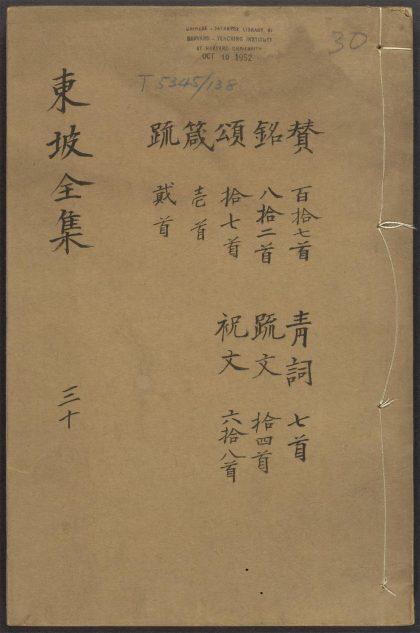 CHINESE - JAPANESE LIBRARY OF
HARVARD - YENCHING INSTITUTE
AT HARVARD UNIVERSITY
OCT 10 1952
30
T 5345/138
贊 百拾七首
銘 八拾二首
頌 拾七首
箴 壱首
䟽 貮首
青詞 七首
䟽文 拾四首
祝文 六拾八首
東坡全集 三十